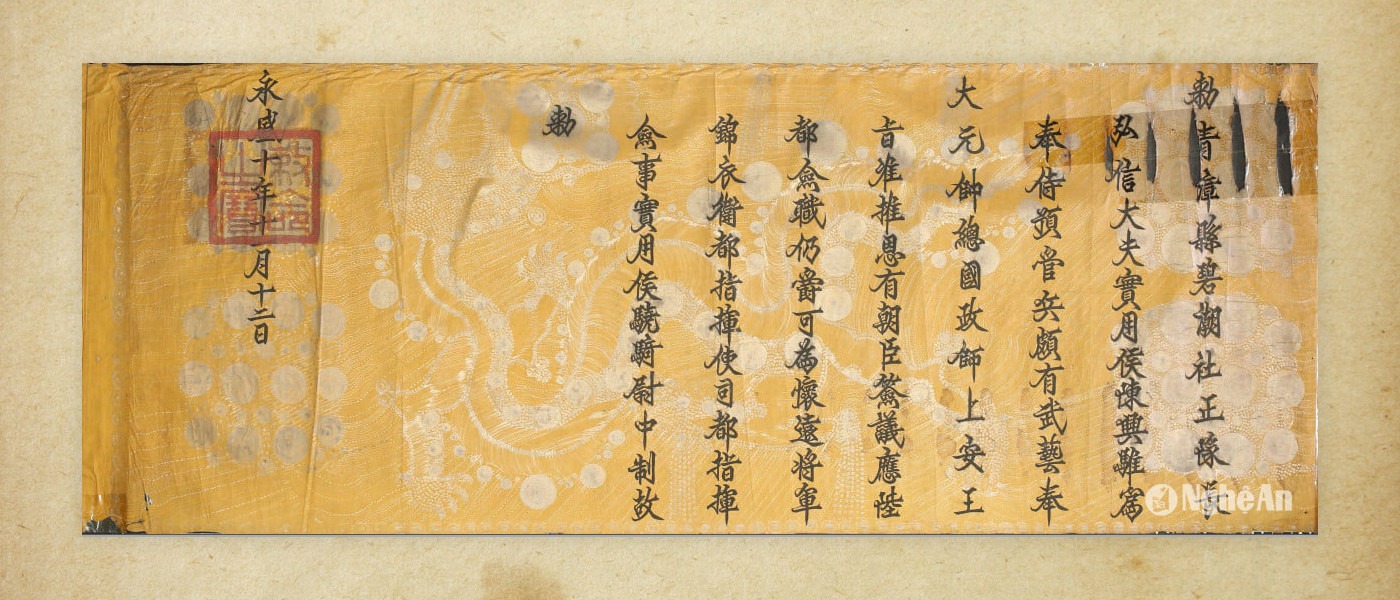 勅青漳縣碧朝社正隊長
弘信大夫實用侯陳興雖為
奉侍預管兵頗有武藝奉
大元帥總國政師上安王
旨准推恩有朝臣僉議應陞
都僉職仍爵可為懷遠將軍
錦衣衛都指揮使司都指揮
僉事實用侯驍騎尉中制故
勅
永盛十年十一月十二日
敕命之寶
NghệAn